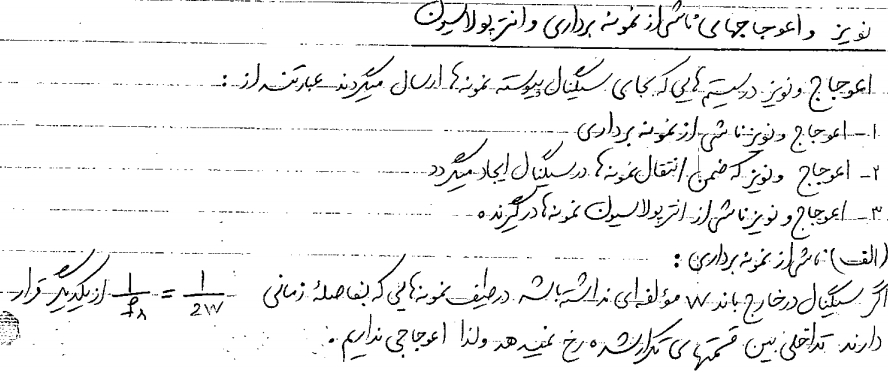 نویز و اعوجاجهای ناشی از نمونه برداری و انترپولاسیون
اعوجاج و نویز در سیستم هایی که بجای سیگنال پیوسته نمونه ها ارسال میگردند عبارتند از :
۱- اعوجاج و نویز ناشی از نمونه برداری
۲- اعوجاج و نویز که ضمن انتقال نمونه ها در سیگنال ایجاد میگردد
۳- اعوجاج و نویز ناشی از انترپولاسیون نمونه ها در گیرنده
(الف) ناشی از نمونه برداری :
اگر سیگنال در خارج باند W مؤلفه ای نداشته باشد در طیف نمونه هایی که بفاصله زمانی 1/2W = 1/fs از یکدیگر قرار
دارند تداخلی بین قسمتهای تکرار شده رخ نمیدهد ولذا اعوجاجی نداریم .